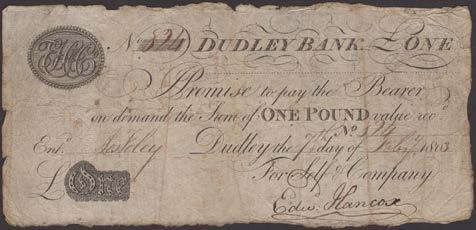 No. 524 DUDLEY BANK. £ONE
I Promise to pay the Bearer
on demand the Sum of ONE POUND value recd.
No 524
Entd. Dudley the 7th day of Feby 1803
For Self & Company
£One
Edwd. Hancox